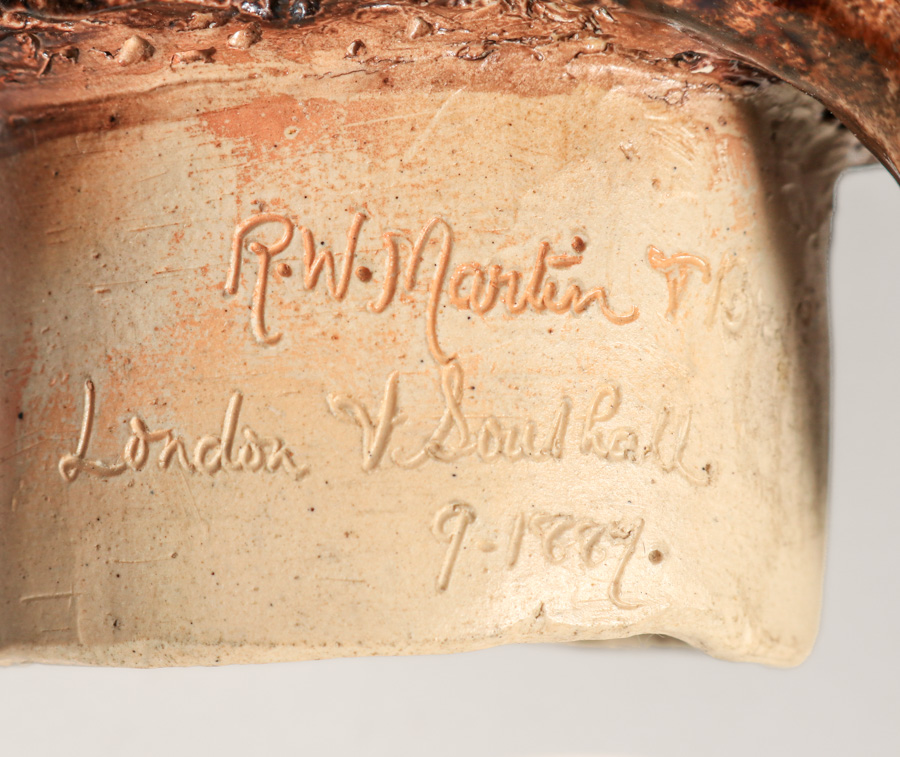 R.W. Martin &
London & Southall.
9-1887.